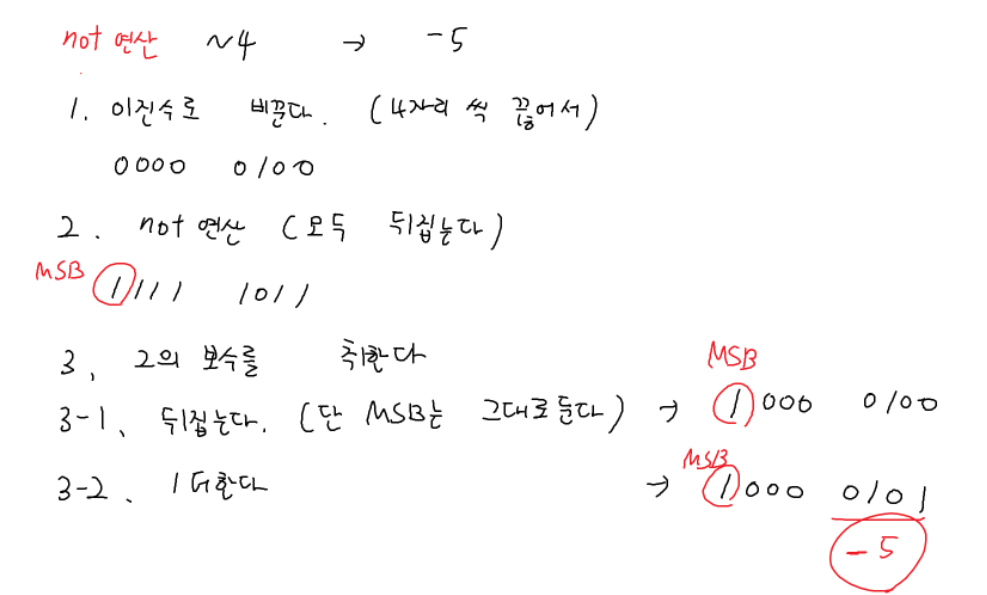 not 연산 ~4 → -5
1. 이진수로 바꾼다. (4자리 씩 끊어서)
0000 0100
2. not 연산 (모두 뒤집는다)
MSB 1111 1011
3, 2의 보수를 취한다
MSB
3-1, 뒤집는다. (단 MSB는 그대로둔다) → 1000 0100
MSB
3-2. 1더한다 → 1000 0101
-5